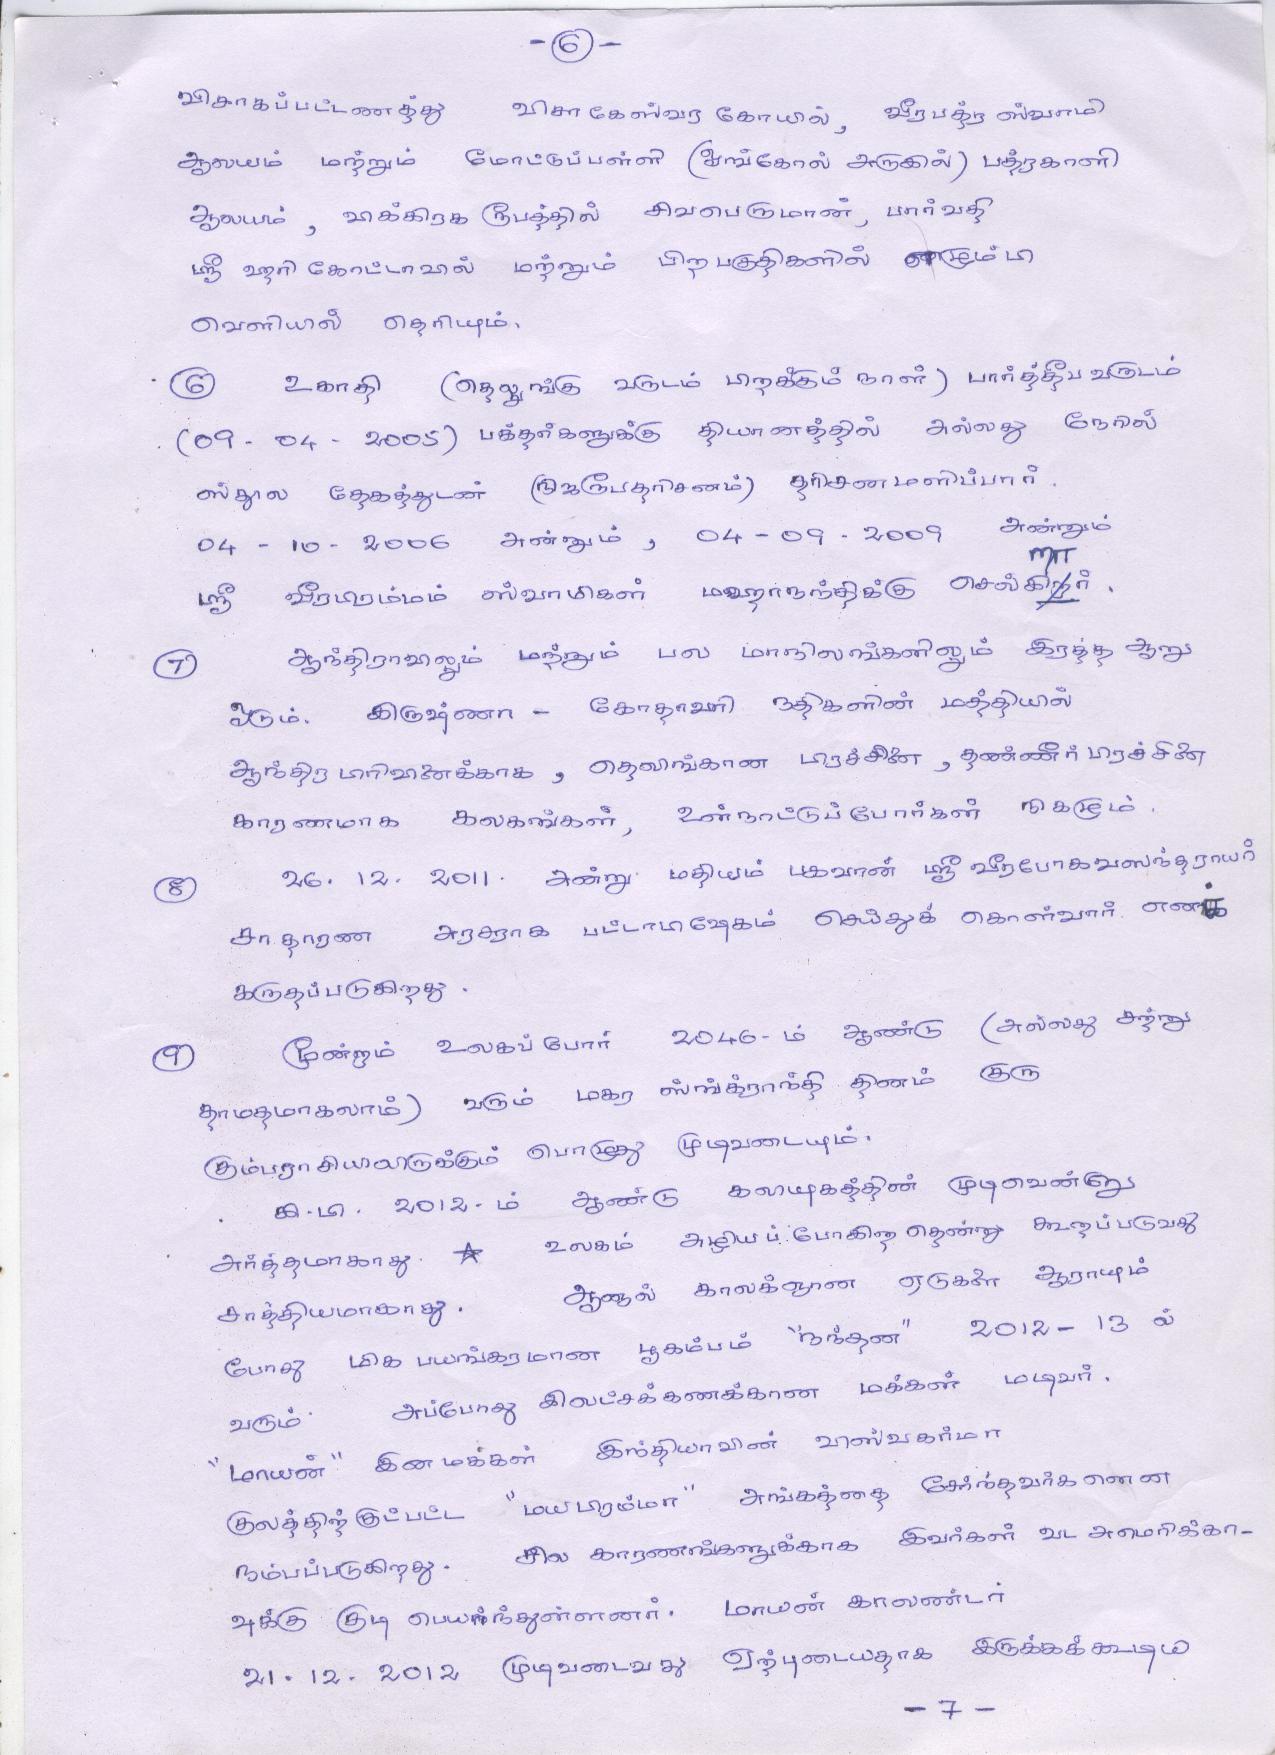 -6-
விசாகப்பட்டணத்து விசாகேஸ்வர கோயில், வீரபத்ர ஸ்வாமி
ஆலயம் மற்றும் மோட்டுப்பள்ளி (அங்கோல் அருகில்) பத்ரகாளி
ஆலயம், விக்கிரக ரூபத்தில் சிவபெருமான், பார்வதி
ஸ்ரீ ஹரி கோட்டாவில் மற்றும் பிற பகுதிகளில் எழும்பி
வெளியில் தெரியும்.
6 உகாதி (தெலுங்கு வருடம் பிறக்கும் நாள்) பார்த்தீப வருடம்
(09-04-2005) பக்தர்களுக்கு தியானத்தில் அல்லது நேரில்
ஸ்தூல தேகத்துடன் (நிஜரூபதரிசனம்) தரிசனமளிப்பார்.
04-10-2006 அன்றும், 04-09-2009 அன்றும்
ஸ்ரீ வீரபிரம்மம் ஸ்வாமிகள் மஹாநந்திக்கு செல்கிறார்.
7 ஆந்திராவிலும் மற்றும் பல மாநிலங்களிலும் இரத்த ஆறு
ஓடும். கிருஷ்ணா - கோதாவரி நதிகளின் மத்தியில்
ஆந்திர பிரிவினைக்காக, தெலிங்கான பிரச்சினை, தண்ணீர் பிரச்சினை
காரணமாக கலகங்கள், உள்நாட்டுப்போர்கள் நிகழும்.
8 26.12.2011. அன்று மதியம் பகவான் ஸ்ரீ வீரபோகவஸந்தராயர்
சாதாரண அரசராக பட்டாபிஷேகம் செய்துக் கொள்வார் எனக்
கருதப்படுகிறது.
9 மூன்றாம் உலகப்போர் 2046-ம் ஆண்டு (அல்லது சற்று
தாமதமாகலாம்) வரும் மகர ஸங்க்ராந்தி தினம் குரு
கும்பராசியிலிருக்கும் பொழுது முடிவடையும்.
கி.பி. 2012-ம் ஆண்டு கலியுகத்தின் முடிவென்று
அர்த்தமாகாது. ☆ உலகம் அழியப்போகிறதென்று கூறப்படுவது
சாத்தியமாகாது. ஆனால் காலக்ஞான ஏடுகளை ஆராயும்
போது மிக பயங்கரமான பூகம்பம் "நந்தன" 2012-13 ல்
வரும். அப்போது இலட்சக்கணக்கான மக்கள் மடிவர்.
"மாயன்" இன மக்கள் இந்தியாவின் விஸ்வகர்மா
குலத்திற்குட்பட்ட "மயபிரம்மா" அங்கத்தை சேர்ந்தவர்களென
நம்பப்படுகிறது. சில காரணங்களுக்காக இவர்கள் வட அமெரிக்கா-
விக்கு குடி பெயர்ந்துள்ளனர். மாயன் காலண்டர்
21.12.2012 முடிவடைவது ஏற்புடையதாக இருக்கக்கூடிய
-7-